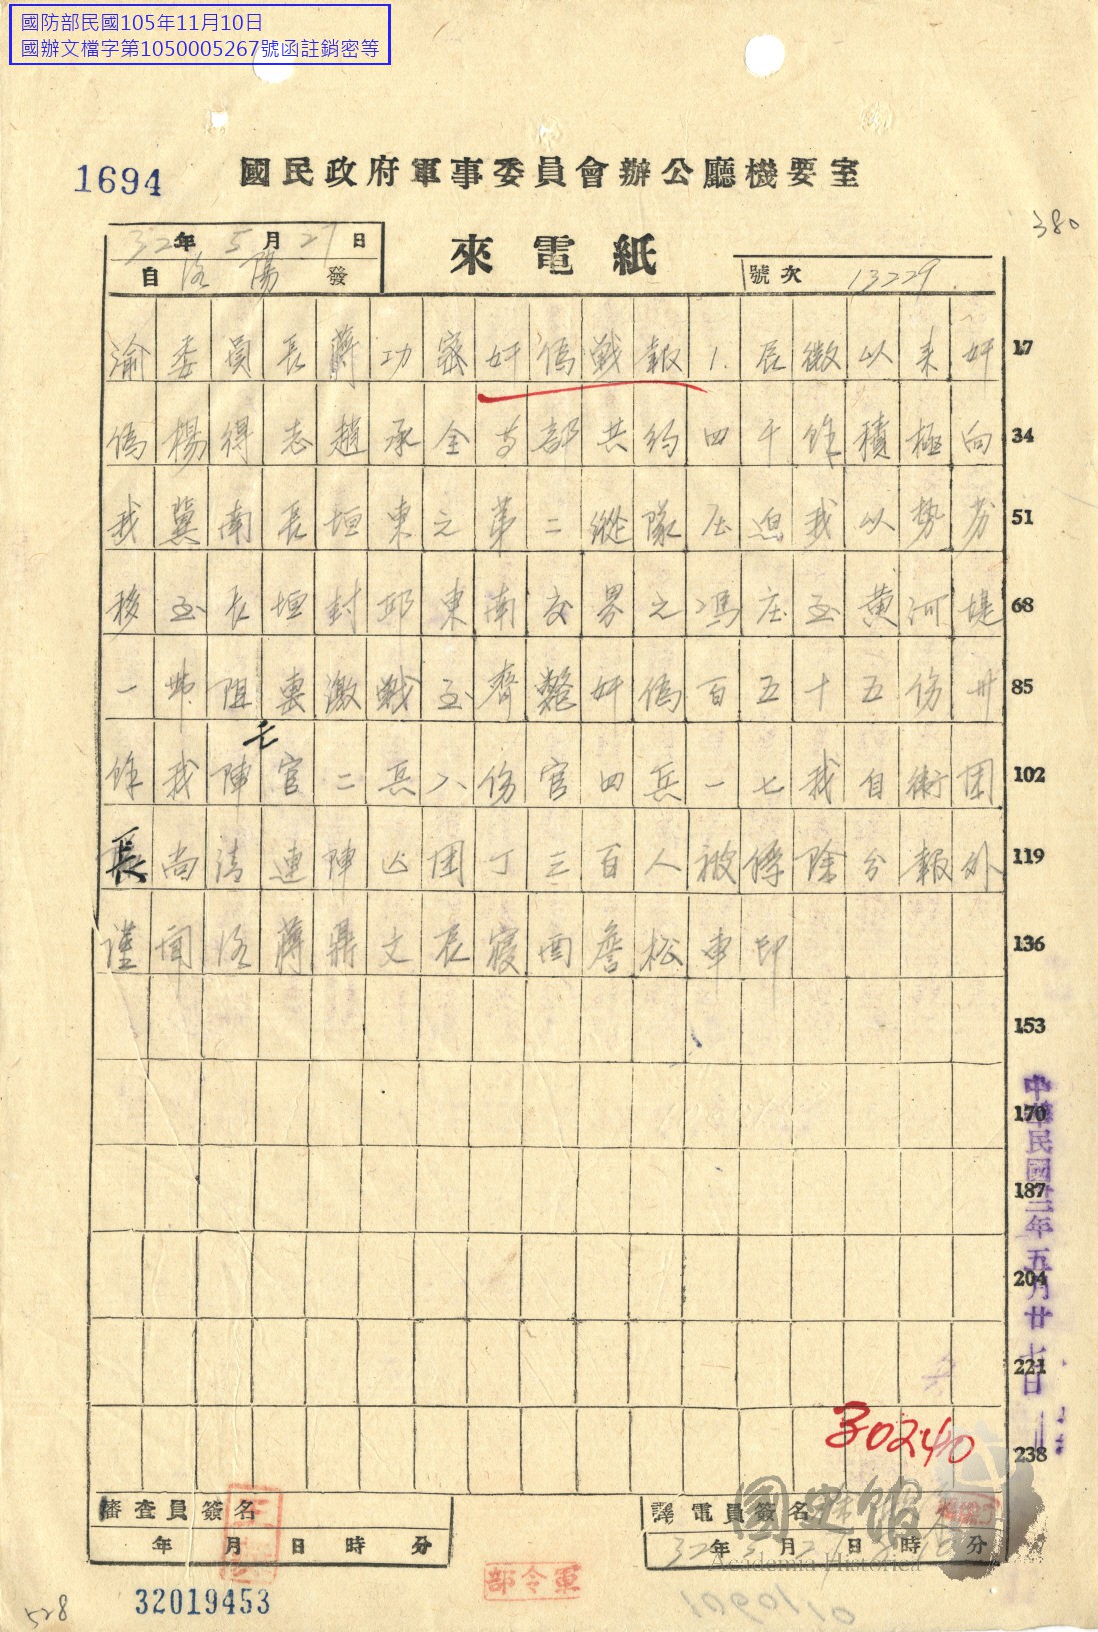 國防部民國105年11月10日
國辦文檔字第1050005267號函註銷密等
1694
國民政府軍事委員會辦公廳機要室
380
32年5月27日
來電紙
自洛陽發
號次 13229
渝委員長蔣功密奸偽戰報1.辰微以來奸 17
偽楊得志趙承金等部共約四千餘積極向 34
我冀南長垣東之第二縱隊压迫我以勢劳 51
移至長垣封邱東南交界之馮庄至黄河堤 68
一帶阻 激戰至齊斃奸偽百五十五伤卅 85
亡
餘我陣官二兵八伤官四兵一七我自衛团 102
長尚清連陣亡团丁三百人被俘除分報外 119
謹聞洛蔣鼎文辰寢酉詹松車印 136
153
170
187
204
221
238
中華民國卅二年五月廿七日
30240
審查員簽名
年月日時分
譯電員簽名
32年5月27日 時 分
國史館
Academia Historica
軍令部
32019453
528
1090110